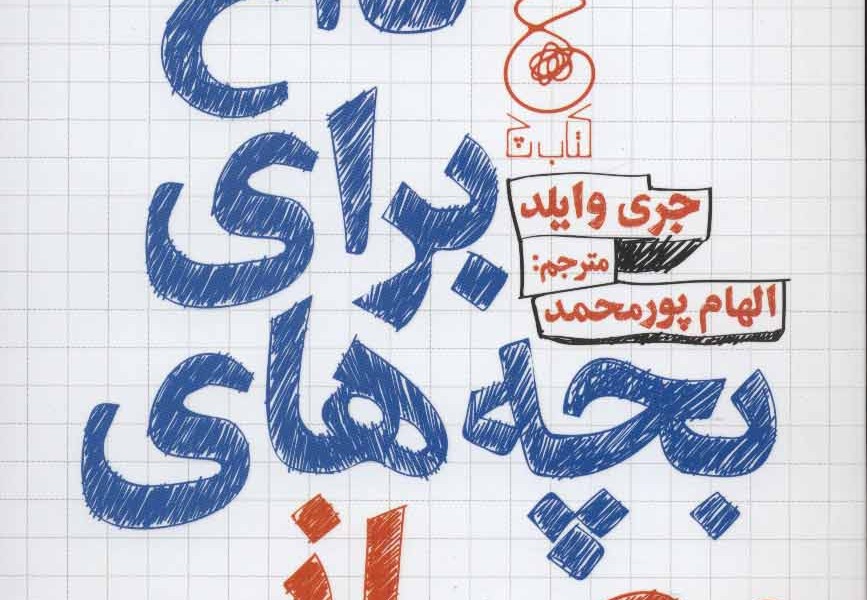 کتاب چ
جری وایلد
مترجم:
الهام پورمحمد
برای
بچه‌های
از